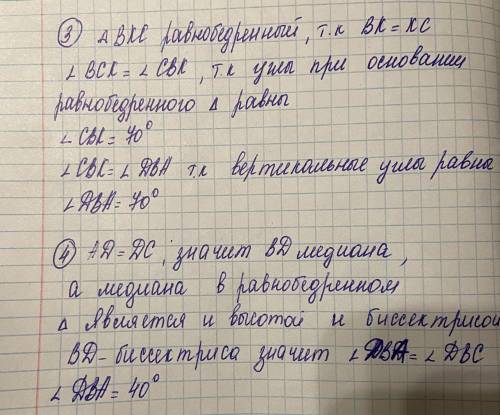 ③ △ ВКС равнобедренный, т.к ВК = КС
∠ ВСК = ∠ СВК, т.к углы при основании
равнобедренного △ равны
∠ СВК = 70°
∠ СВК = ∠ ДВА т.к вертикальные углы равны
∠ ДВА = 70°
④ AD = DC, значит BD медиана,
а медиана в равнобедренном
△ является и высотой и биссектрисой
BD - биссектриса значит ∠ ДВА = ∠ DBC
∠ ДВА = 40°